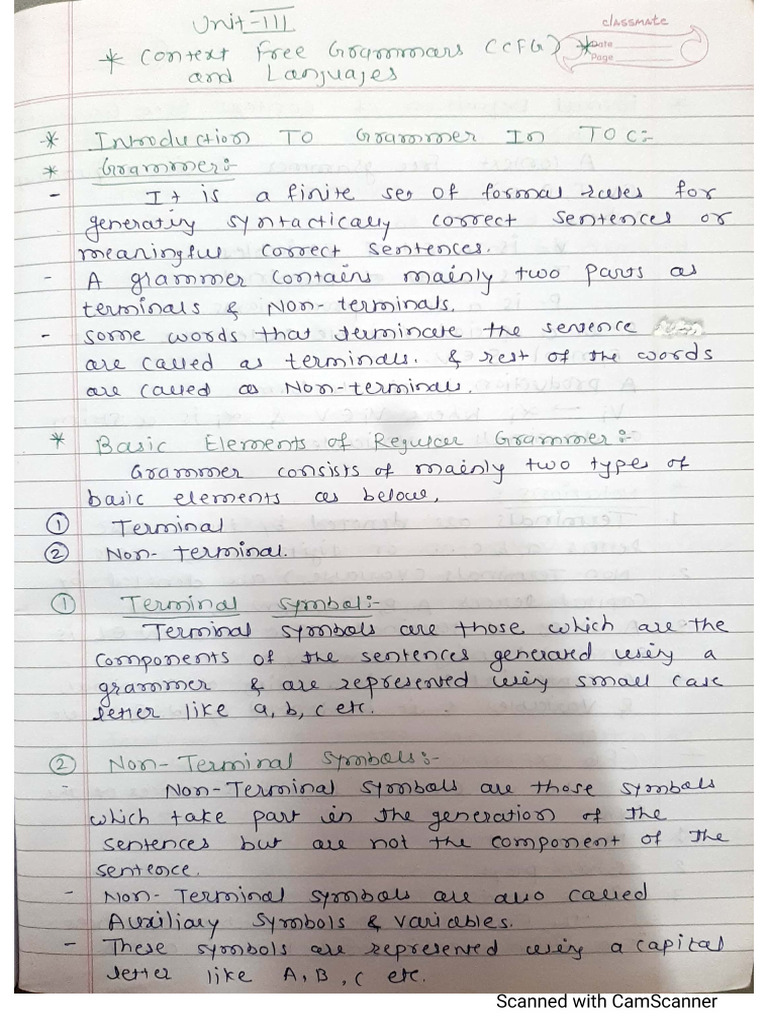 Unit-III
classmate
* Context Free Grammars (CFG) *
Date
Page
and Languajes
* Introduction To Grammer In TOC:-
* Grammer:-
- It is a finite set of formal rules for
generating syntactically correct sentences or
meaningful correct sentences.
- A grammer contains mainly two parts as
terminals & Non-terminals.
- some words that terminate the sentence
are called as terminals. & rest of the words
are called as Non-terminals.
* Basic Elements of Regular Grammer:-
Grammer consists of mainly two types of
basic elements as below,
① Terminal
② Non-terminal.
① Terminal symbol:-
Terminal symbols are those which are the
components of the sentences generated using a
grammer & are represented using small case
letter like a, b, c etc.
② Non-Terminal Symbols:-
Non-Terminal symbols are those symbols
which take part in the generation of the
sentences but are not the component of the
sentence.
- Non-Terminal symbols are also called
Auxiliary symbols & variables.
- These symbols are represented using a capital
letter like A, B, C etc.
Scanned with CamScanner